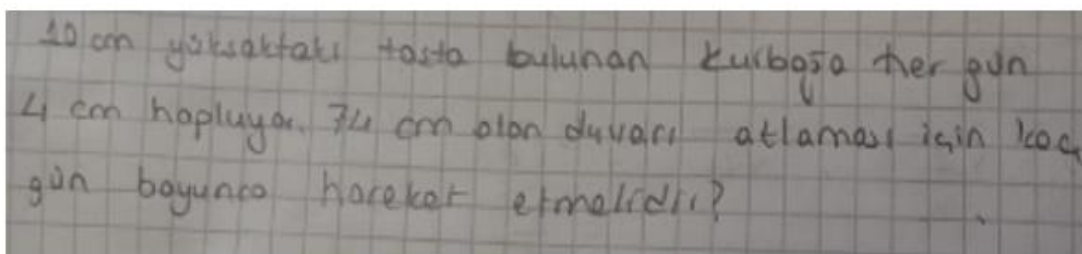 10 cm yüksektaki taşta bulunan kurbağa her gün
4 cm hopluyor. 74 cm olan duvarı atlaması için kaç
gün boyunca hareket etmelidir?